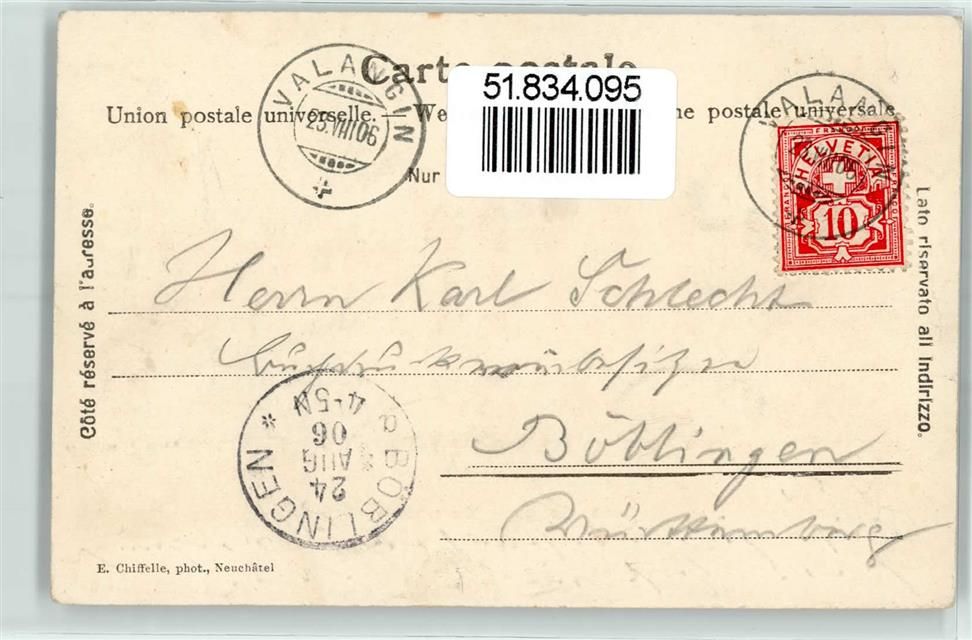 Carte postale
VALANGIN
23.VIII.06
51.834.095
Union postale universelle. — We ne postale universale
VALANGIN
Nur
HELVETIA
FRANCO
10
Côté réservé à l'adresse.
Lato riservato all indirizzo.
Herrn Karl Schlecht
Buchdruckereibesitzer
Böblingen
Württemberg
BÖBLINGEN *
24
AUG
06
4-5N
E. Chiffelle, phot., Neuchâtel